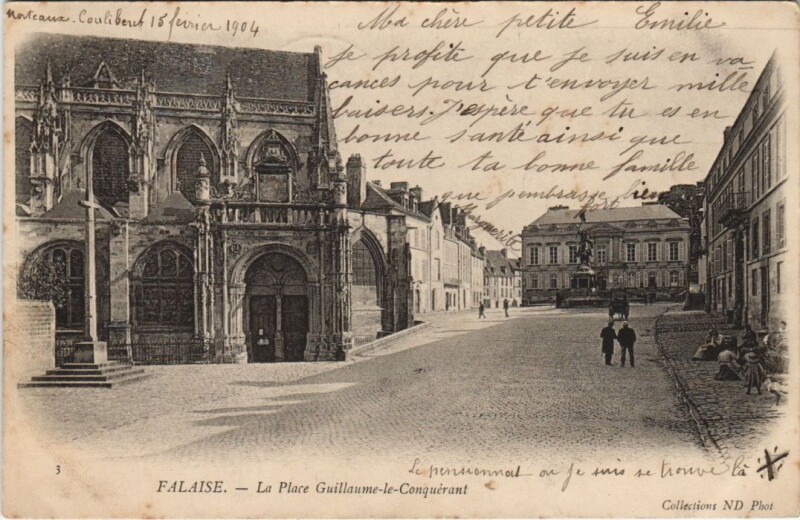 Morteaux-Coulibœuf 15 février 1904
Ma chère petite Emilie
Je profite que je suis en va
cances pour t'envoyer mille
baisers. J'espère que tu es en
bonne santé ainsi que
toute ta bonne famille
que j'embrasse bien
fort
Le pensionnat où je suis se trouve là
3
FALAISE. — La Place Guillaume-le-Conquérant
Collections ND Phot